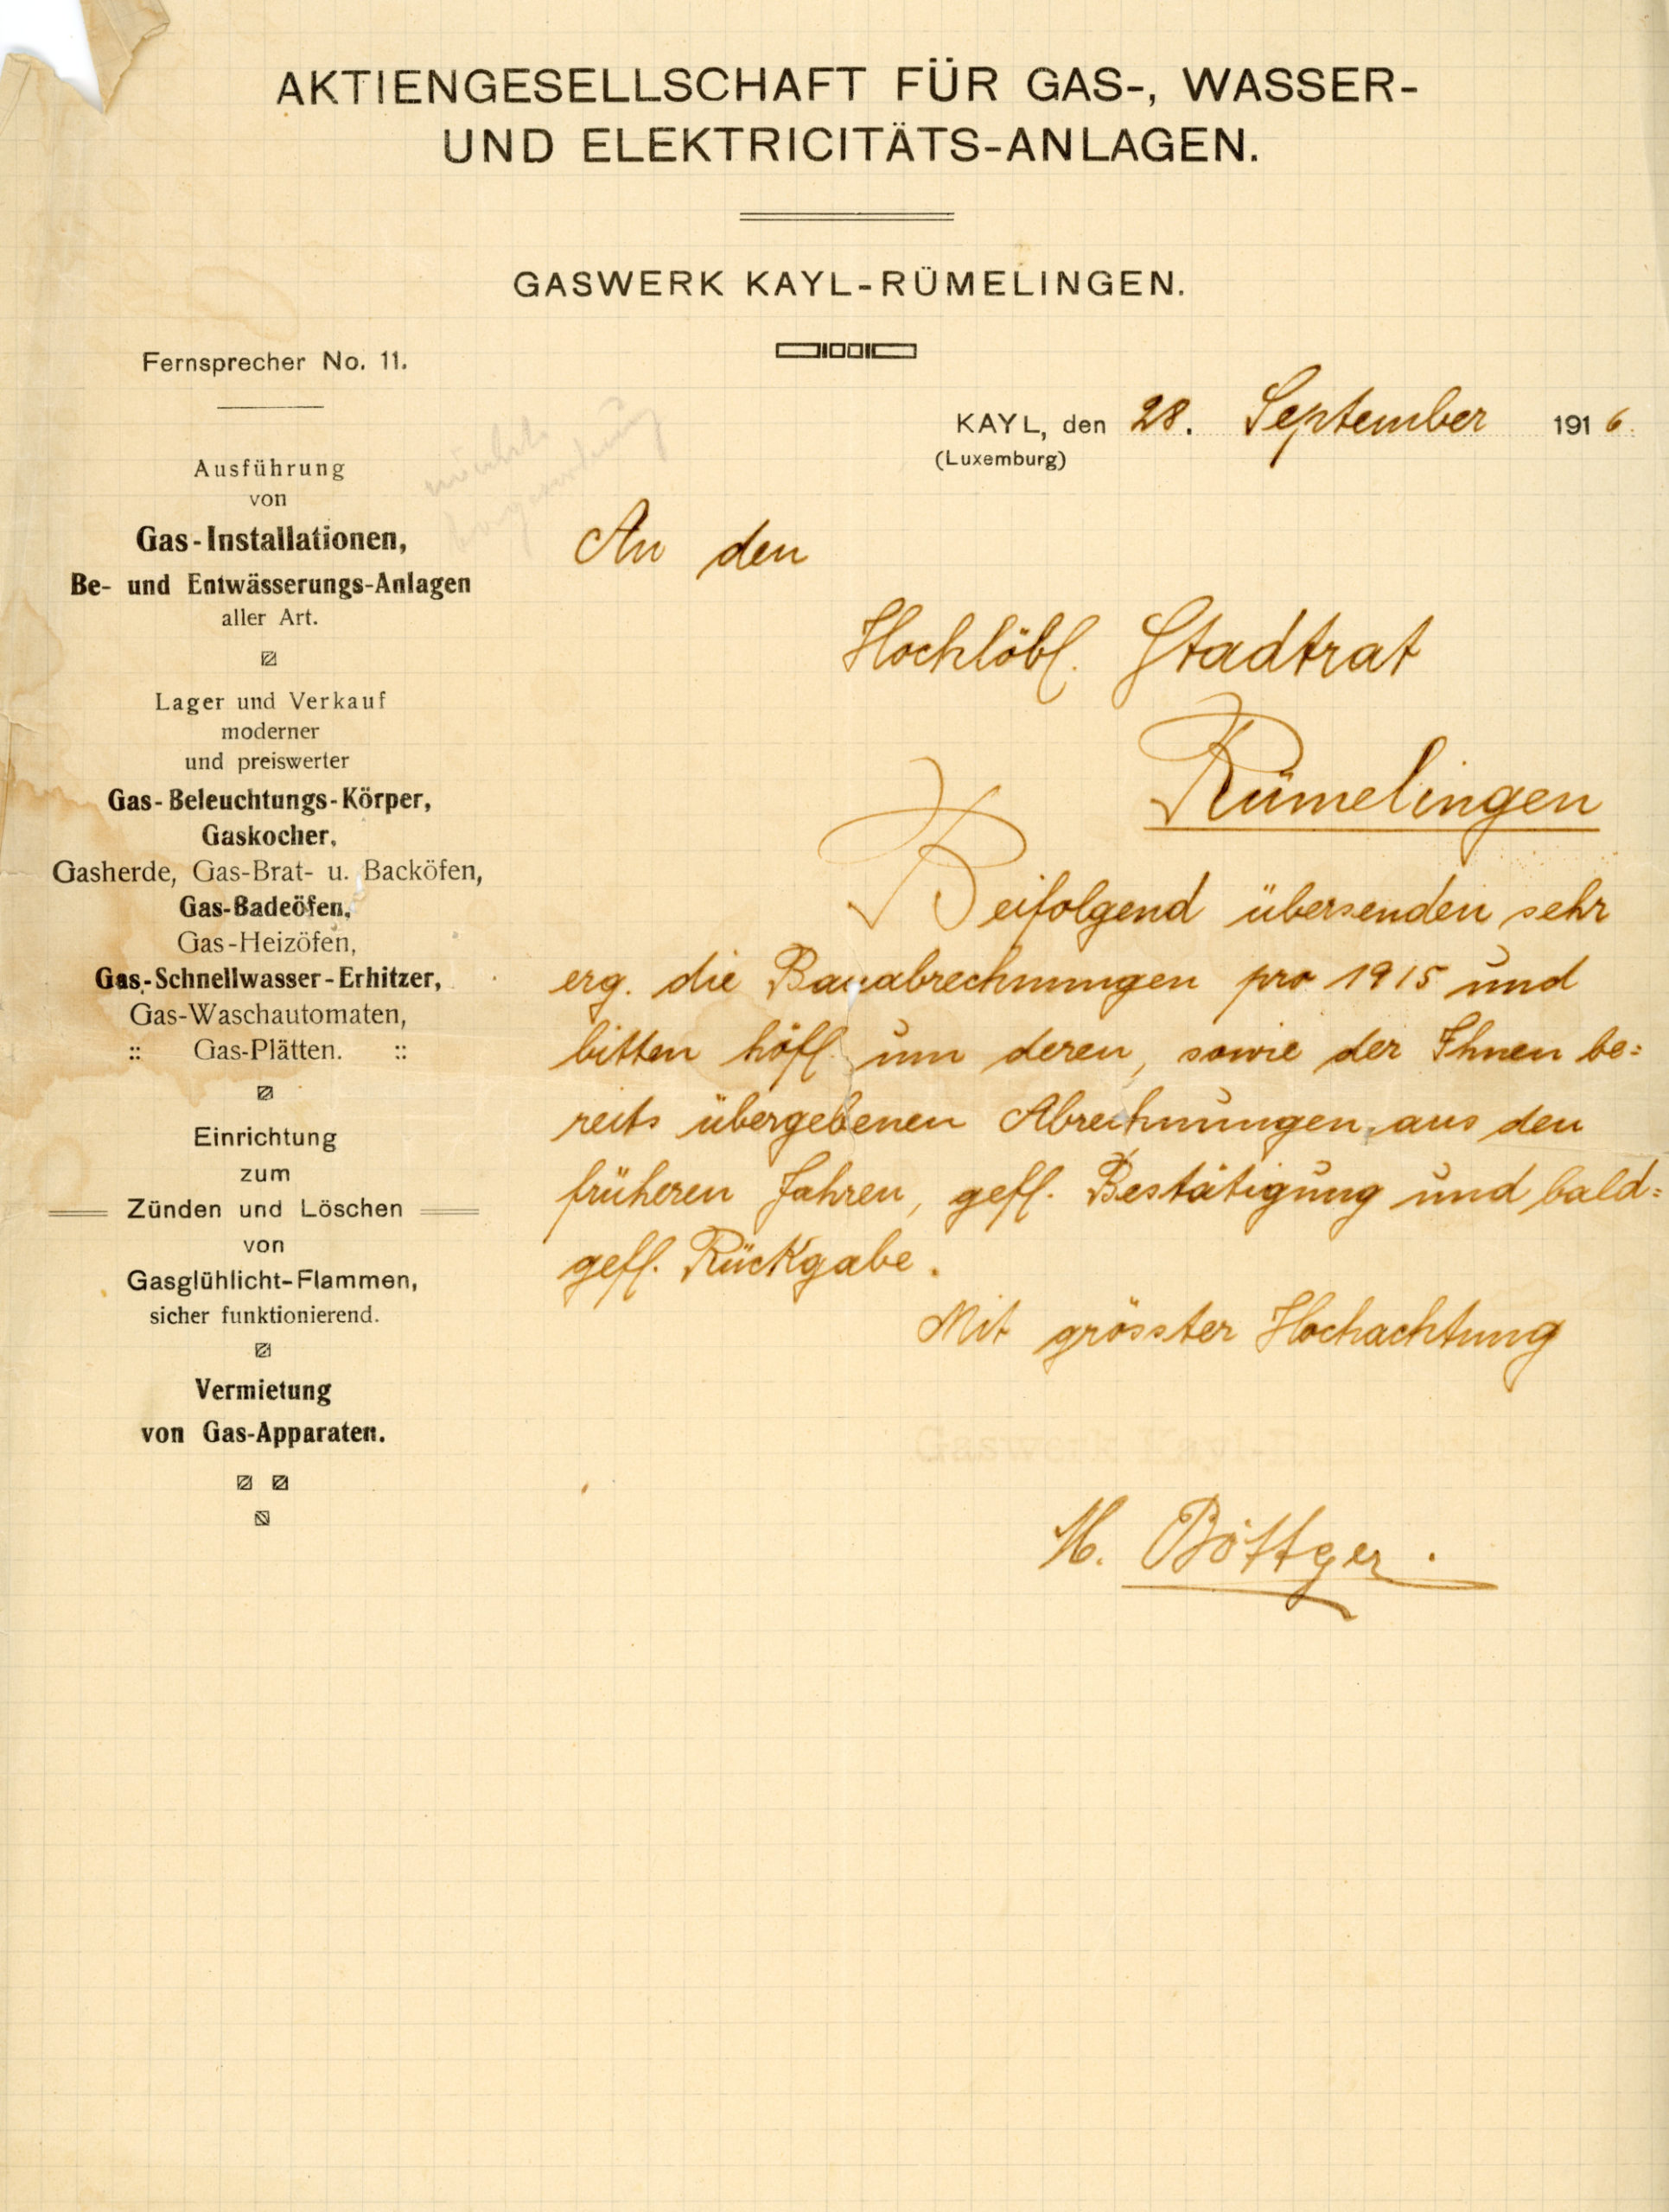 AKTIENGESELLSCHAFT FÜR GAS-, WASSER-
UND ELEKTRICITÄTS-ANLAGEN.
GASWERK KAYL-RÜMELINGEN.
Fernsprecher No. 11.
KAYL, den 28. September 1916.
(Luxemburg)
Ausführung
von
Gas-Installationen,
Be- und Entwässerungs-Anlagen
aller Art.
Lager und Verkauf
moderner
und preiswerter
Gas-Beleuchtungs-Körper,
Gaskocher,
Gasherde, Gas-Brat- u. Backöfen,
Gas-Badeöfen,
Gas-Heizöfen,
Gas-Schnellwasser-Erhitzer,
Gas-Waschautomaten,
:: Gas-Plätten. ::
Einrichtung
zum
Zünden und Löschen
von
Gasglühlicht-Flammen,
sicher funktionierend.
Vermietung
von Gas-Apparaten.
An den
Hochlöbl. Stadtrat
Rümelingen
Beifolgend übersenden sehr
erg. die Bauabrechnungen pro 1915 und
bitten höfl. um deren, sowie der Ihnen be=
reits übergebenen Abrechnungen aus den
früheren Jahren, gefl. Bestätigung und bald=
gefl. Rückgabe.
Mit grösster Hochachtung
Gaswerk Kayl-
M. Böttger.